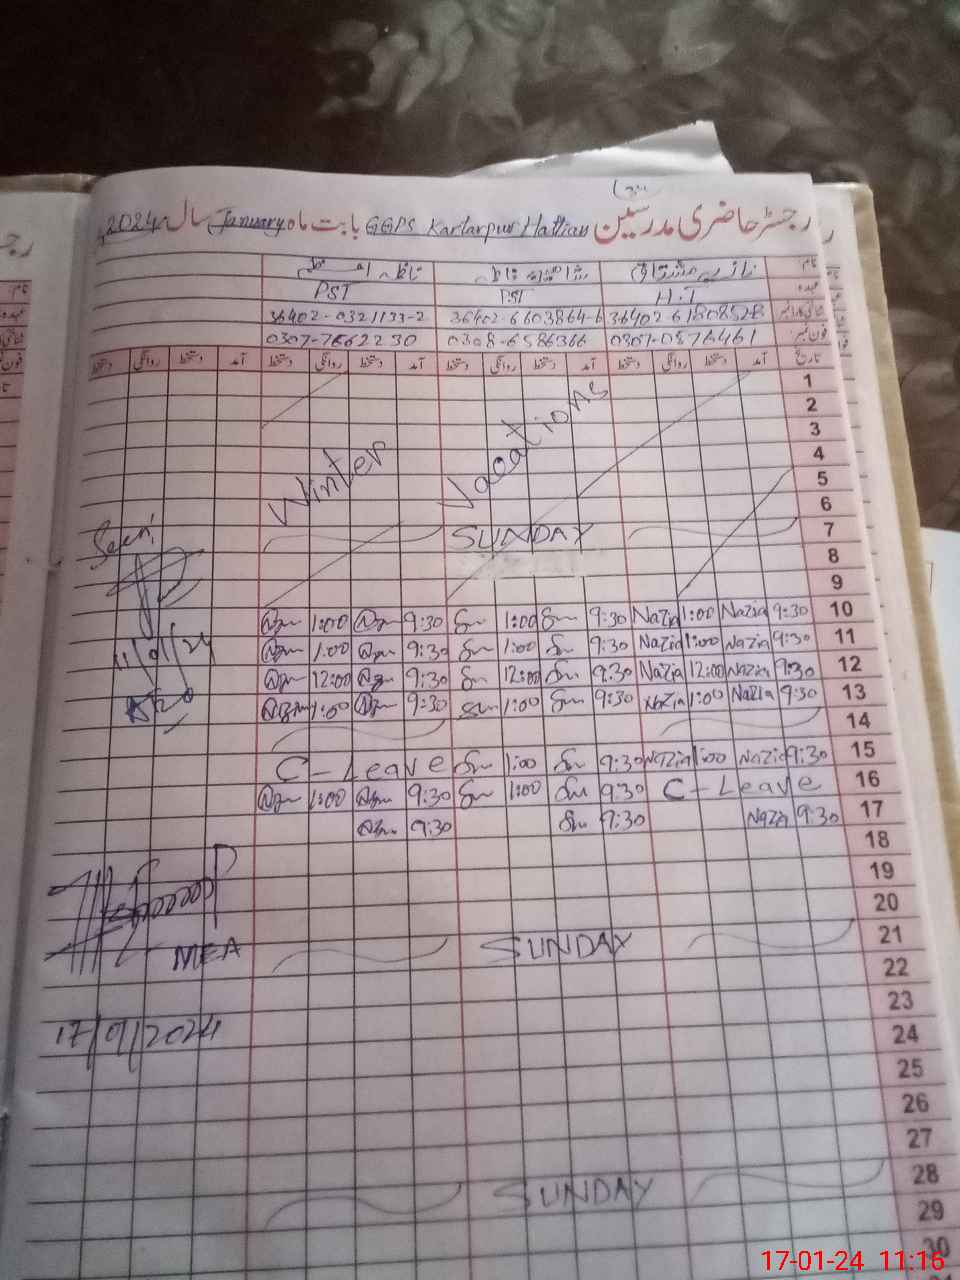 رجسٹر حاضری مدرسین GGPS Kartarpur Hattian بابت ماہ January سال 2024
نام نازیہ مشتاق
عہدہ H.T PST PST
36402-6180852-8 36402-6603864-6 36402-0321133-2
فون نمبر 0307-0576461 0308-6586366 0307-7662230
تاریخ آمد دستخط روانگی دستخط آمد دستخط روانگی دستخط آمد دستخط روانگی دستخط آمد دستخط روانگی دستخط
1
2
3
4
Winter Vacations
5
6
SUNDAY 7
Seen
8
9
1:00 9:30 1:00 9:30 Nazia 1:00 Nazia 9:30 10
11/01/24
1:00 9:30 1:00 9:30 Nazia 1:00 Nazia 9:30 11
12:00 9:30 12:00 9:30 Nazia 12:00 Nazia 9:30 12
1:00 9:30 1:00 9:30 Nazia 1:00 Nazia 9:30 13
14
C-Leave 1:00 9:30 Nazia 1:00 Nazia 9:30 15
1:00 9:30 1:00 9:30 C-Leave 16
9:30 9:30 Nazia 9:30 17
18
19
20
MEA SUNDAY 21
22
23
17/01/2024 24
25
26
27
SUNDAY 28
29
30
17-01-24 11:16